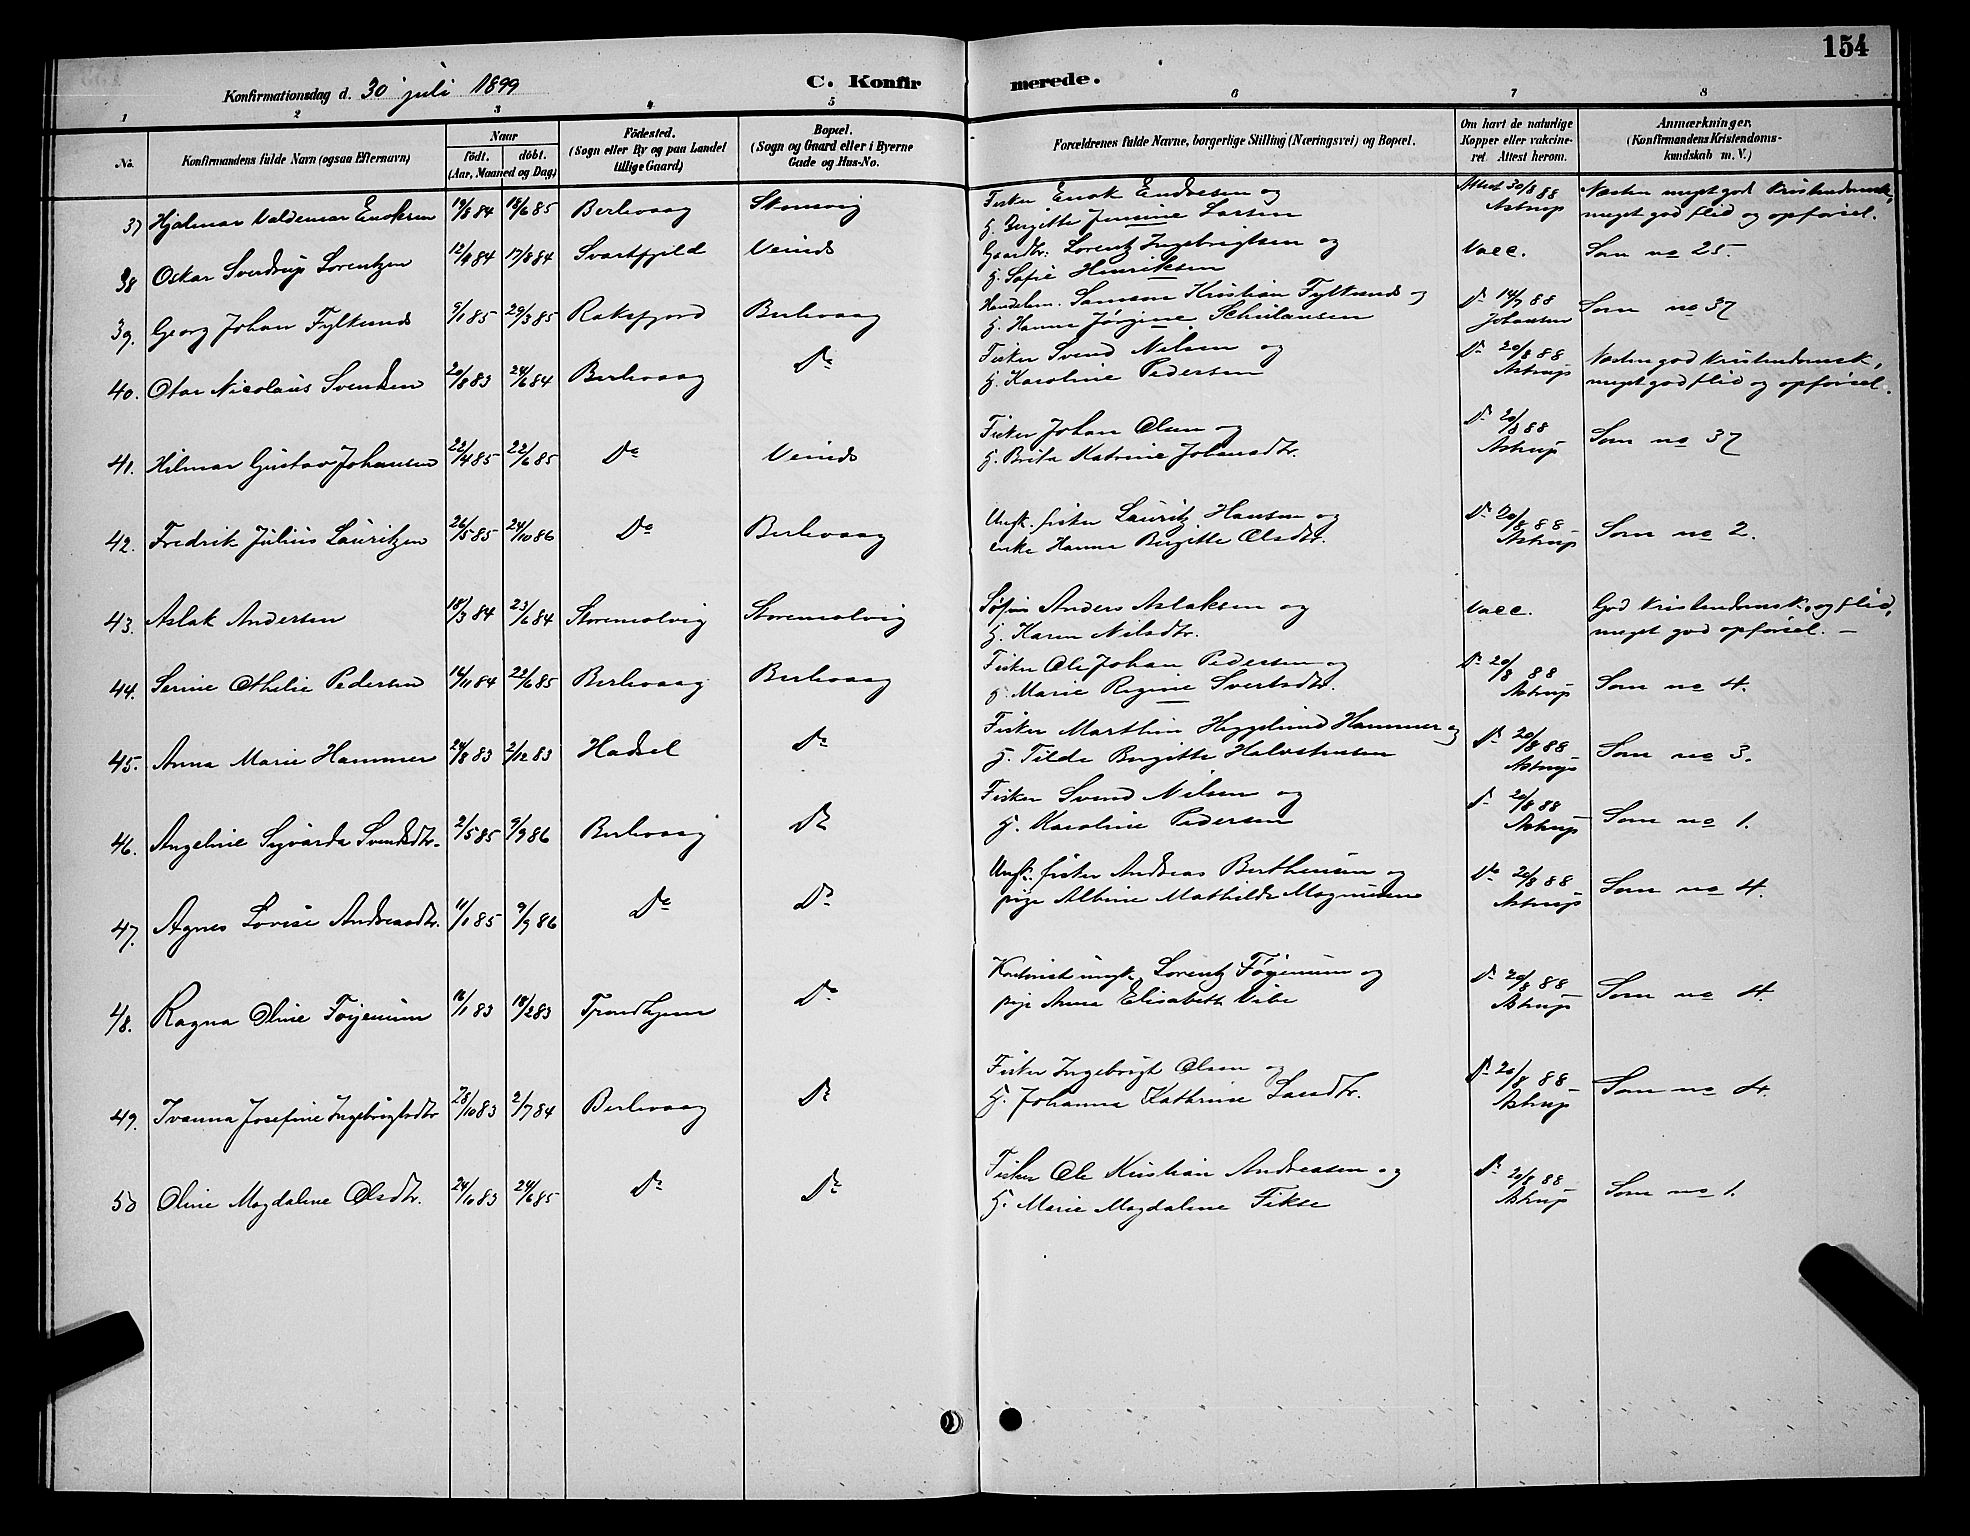 154
Konfirmationsdag d. 30 juli 1899 C. Konfirmerede.
1 2 3 4 5 6 7 8
No. Konfirmandens fulde Navn (ogsaa Efternavn) Naar født. døbt. (Aar, Maaned og Dag) Fødested. (Sogn eller By og paa Landet tillige Gaard) Bopæl. (Sogn og Gaard eller i Byerne Gade og Hus-No. Forældrenes fulde Navne, borgerlige Stilling (Næringsvei) og Bopæl. Om havt de naturlige Kopper eller vakcineret Attest herom. Anmærkninger. (Konfirmandens Kristendomskundskab m. V.)
37 Hjalmar Valdemar Enoksen 19/8 84 18/6 85 Berlevaag Fisker Enok Endresen og Attest 30/8 88 Næsten meget god Kristendomsk.,
G. Bergitte Jensine Larsen Astrup meget god flid og opførsel.
38 Oskar Sverdrup Lorentzen 17/8 84 Svartfjeld Veines Gaardbr. Lorentz Ingebrigtsen og Vacc. Som no 25.
G. Sofie Henriksen
39. Georg Johan Fylkesnes 9/1 85 29/3 85 Raksfjord Berlevaag Handelsm. Samson Kristian Fylkesnes og Do 14/7 88 Som no 37
G. Hanna Jørgine Johansen
40. Otar Nicolaus Svendsen 20/8 83 24/6 84 Berlevaag Do Fisker Svend Nilsen og Do 20/8 88 Næsten god Kristendomsk.,
G. Karoline Pedersen Astrup meget god flid og opførsel.
41. Hilmar Gustav Johansen 22/4 85 22/6 85 Do Veines Fisker Johan Olsen og Do 20/8 88 Som no 37
G. Brita Katrine Johansdtr. Astrup
42. Fredrik Julius Lauritzen 26/5 85 24/10 86 Do Berlevaag Ungk. fisker Lauritz Hansen og Do 20/8 88 Som no 2.
enke Hanna Birgitte Olsdtr. Astrup
43. Aslak Andersen 18/3 84 23/6 84 Storemolvig Storemolvig Søfin Anders Aslaksen og Vacc. God Kristendomsk. og flid,
G. Karen Nilsdtr. meget god opførsel. —
44. Serine Othelie Pedersen 14/11 84 22/6 85 Berlevaag Berlevaag Fisker Ole Johan Pedersen og Do 20/8 88 Som no 4.
G. Marie Regine Astrup
45. Anna Marie Hammer 24/8 83 2/12 83 Hadsel Do Fisker Marthin Heggelund Hammer og Do 20/8 88 Som no 3.
G. Tilda Birgitte Astrup
46. Angeline Sigvarda Svendsdtr. 2/5 85 9/9 86 Berlevaag Do Fisker Svend Nilsen og Do 20/8 88 Som no 1.
G. Karoline Pedersen Astrup
47. Agnes Lovise Andreasdtr. 11/1 85 9/9 86 Do Do Ungk. fisker Andreas Berthinsen og Do 20/8 88 Som no 4.
pige Albine Mathilde Magnusen Astrup
48. Ragna Oline Føyenum 16/1 83 18/2 83 Trondhjem Do Kontorist ungk. Lorentz Føyenum og Do 20/8 88 Som no 4.
pige Anna Elisabeth Vibe Astrup
49. Ivanna Josefine Ingebrigtsdtr 28/10 83 2/7 84 Berlevaag Do Fisker Ingebrigt Olsen og Do 20/8 88 Som no 4.
G. Johanna Kathrine Larsdtr. Astrup
50 Oline Magdalene Olsdtr. 24/10 83 24/6 85 Do Do Fisker Ole Kristian Andreasen og Do 20/8 88 Som no 1.
G. Marie Magdalene Fikse Astrup